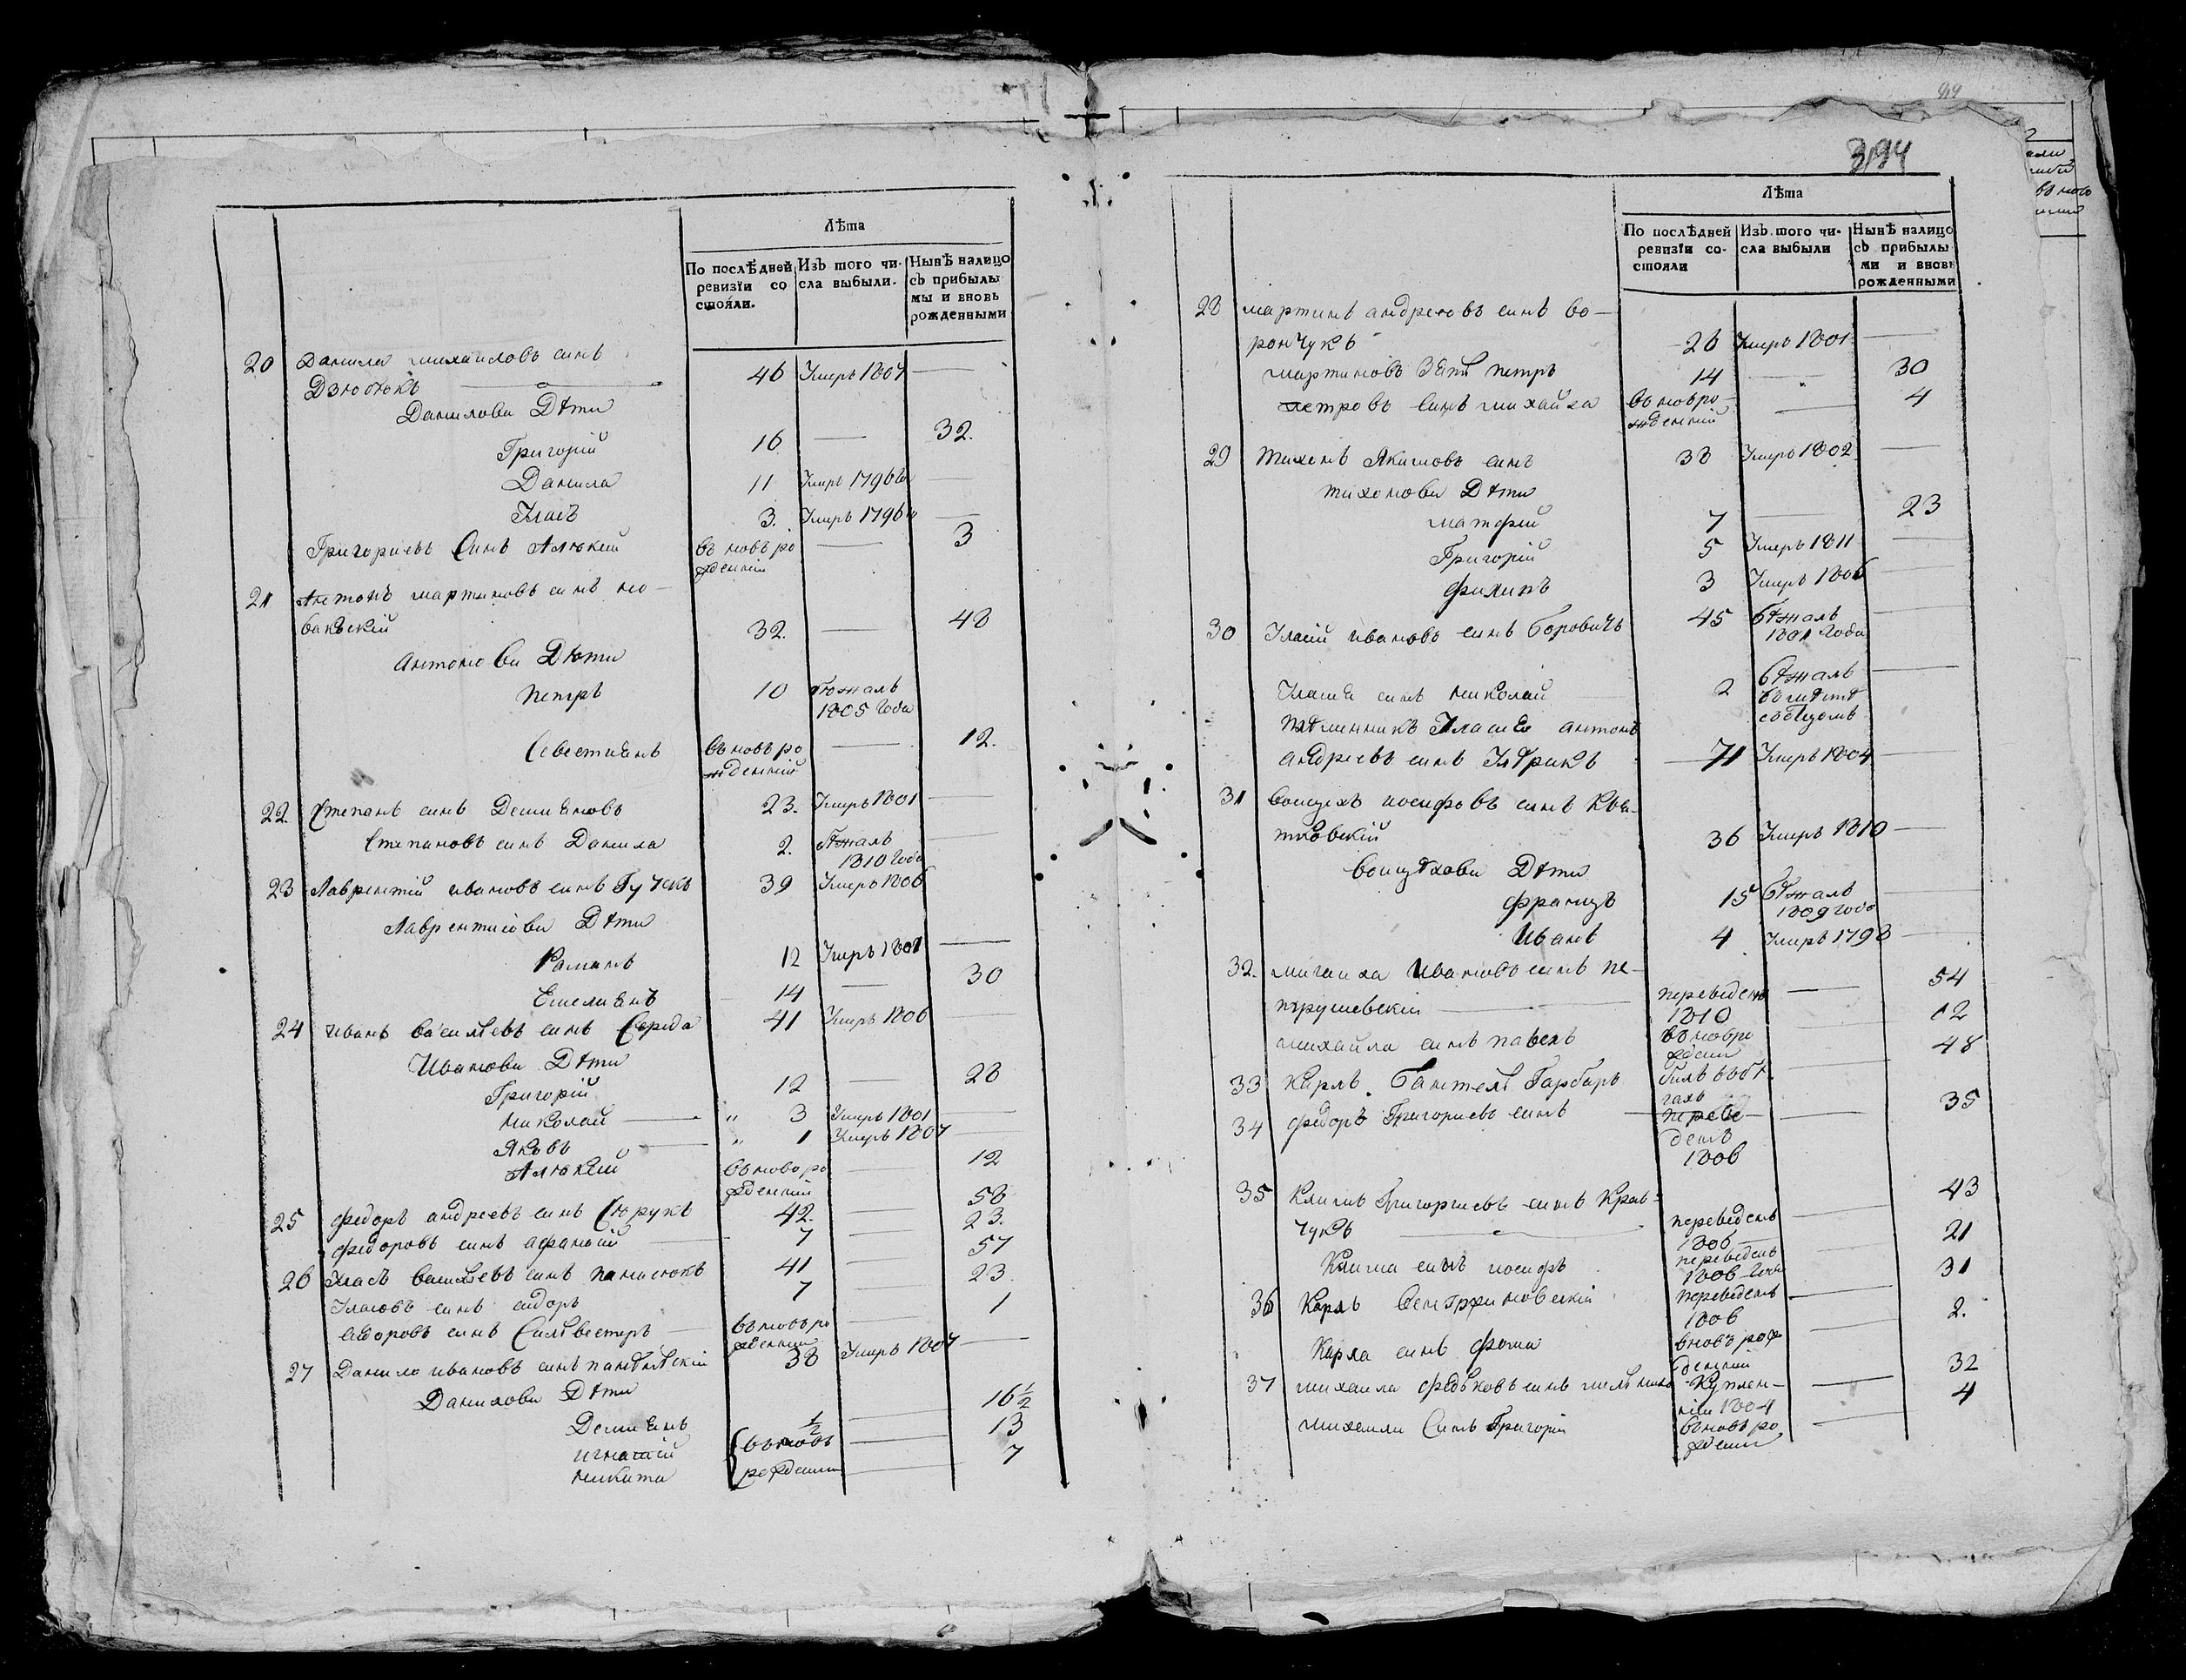 Лѣта
По послѣдней ревизїи состояли.
Изъ того числа выбыли.
Нынѣ налицо съ прибылымы и вновь рожденными
20 Данила михаиловъ синъ
Дзюбюкъ 46 Умеръ 1807
Данилови Дѣти
Григорій 16 — 32.
Данила 11 Умръ 1796го —
Уласъ 3. Умеръ 1796го —
Григориевъ Синъ Алѣкѣй въ новъ ро — 3
жденній
21 Антонъ мартиновъ синъ но-
бакъскій 32. — 48
антонови Дѣти
петръ 10 бѣжалъ
1805 Года
Севестиѣнъ въ новъ ро — 12.
жденній
22. Степанъ синъ Демиѣновъ 23. Умръ 1801 —
Степановъ синъ Данила 2. бѣжалъ —
1810 Года
23 Лаврентій ивановъ синъ 39 Умеръ 1806
Лаврентиови Дѣти
Раманъ 12 Умръ 1801 —
Емелиѣнъ 14 — 30
24 иванъ василѣевъ синъ Середа 41 Умръ 1806 —
Иванови Дѣти
Григорій 12 — 28
николай — " 3 Умеръ 1801 —
Яковъ — " 1 Умеръ 1807 —
Алѣкѣй въ ново ро — 12
жденній
25 федоръ андреевъ синъ Сюрукъ 42. — 58
федоровъ синъ афанасій — 7 — 23.
26 Уласъ василѣевъ синъ панасюкъ 41 — 57
Уласовъ синъ сидоръ 7 — 23.
сидоровъ синъ Силѣвестръ — въ новъ ро — 1
жденній
27 Данило ивановъ синъ 38 Умръ 1807 —
Данилови Дѣти
Демиѣнъ ½ — 16½
игнатій въ новъ — 13
никита рожденни — 7
394
Лѣта
По послѣдней ревизїи состояли
Изъ того числа выбыли
Нынѣ налицо съ прибылыми и вновь рожденными
28 мартинъ андреювъ синъ во-
рончукъ 26 Умеръ 1801 —
мартиновъ Зѣтѣ петръ 14 — 30
петровъ Синъ михайла въ новъ ро- — 4
жденній
29 тихенъ Якимовъ синъ 38 Умръ 1802 —
тихонови Дѣти
матфій 7 — 23
Григорій 5 Умръ 1811 —
филипъ 3 Умръ 1806 —
30 Уласій ивановъ синъ Боровичъ 45 бѣжалъ —
1801 Года
Уласиѣ синъ николай 2 бѣжалъ —
вмѣстѣ
со отцомъ
племинникъ Уласиѣ антонъ
андреевъ синъ 71 Умеръ 1804 —
31 Воицехъ иосифовъ синъ Квѣ-
тковскій 36 Умръ 1810 —
Воицѣхови Дѣти
францъ 15 бѣжалъ —
1809 года
Иванъ 4 Умръ 1798 —
32. михаила Ивановъ синъ пе-
трушевскій — переведенъ — 54
1810
михайла синъ павелъ въ новъро — 12
жденни
33 Карлъ Гарбаръ билъ въ бѣ- — 48
гахъ
34 федоръ Григориевъ синъ — переве- — 35
денъ
1806
35 Климъ Григоргиевъ синъ Крав-
чукъ — переведенъ — 43
1806
Клима синъ иосифъ переведенъ — 21
1806 —
36 Карлъ переведенъ — 31
1806
Карла синъ фома вновъ рож — 2.
денній
37 михаила федѣковъ синъ Куплен- — 32
ній 1804
михаили Синъ Григорій въ новъ ро — 4
ждени